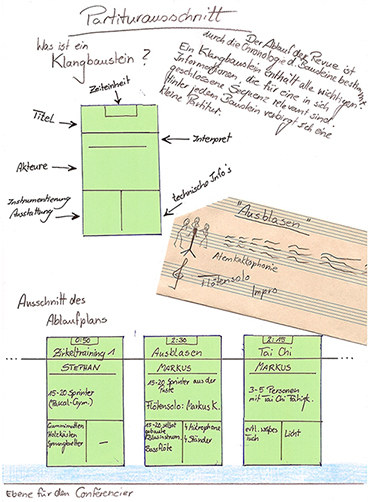 Partiturausschnitt
Was ist ein
Klangbaustein ?
Der Ablauf der Revue ist
durch die Chronologie d. Bausteine bestimmt.
Ein Klangbaustein enthält alle wichtigen
Informationen, die für eine in sich
geschlossene Sequenz relevant sind.
Hinter jedem Baustein verbirgt sich eine
kleine Partitur.
Zeiteinheit
Titel
Interpret
Akteure
Instrumentierung
Ausstattung
technische Info's
"Ausblasen"
Atemkakophonie
Flötensolo
Impro
Ausschnitt des
Ablaufplans
0:50
Zirkeltraining 1
STEPHAN
15-20 Sprinter
(Pascal-Gym.)
Gummimatten
Holzkästen
Sprungbretter
–
2:30
Ausblasen
MARKUS
15-20 Sprinter aus der
Puste
Flötensolo: Markus K.
15-20 selbst
gebaute
Blasinstrum.
Bassflöte
4 Mikrophone
4 Ständer
2:15
Tai Chi
MARKUS
3-5 Personen
mit Tai Chi Tätigk.
evtl. weißes
Tuch
Licht
Ebene für den Conferencier